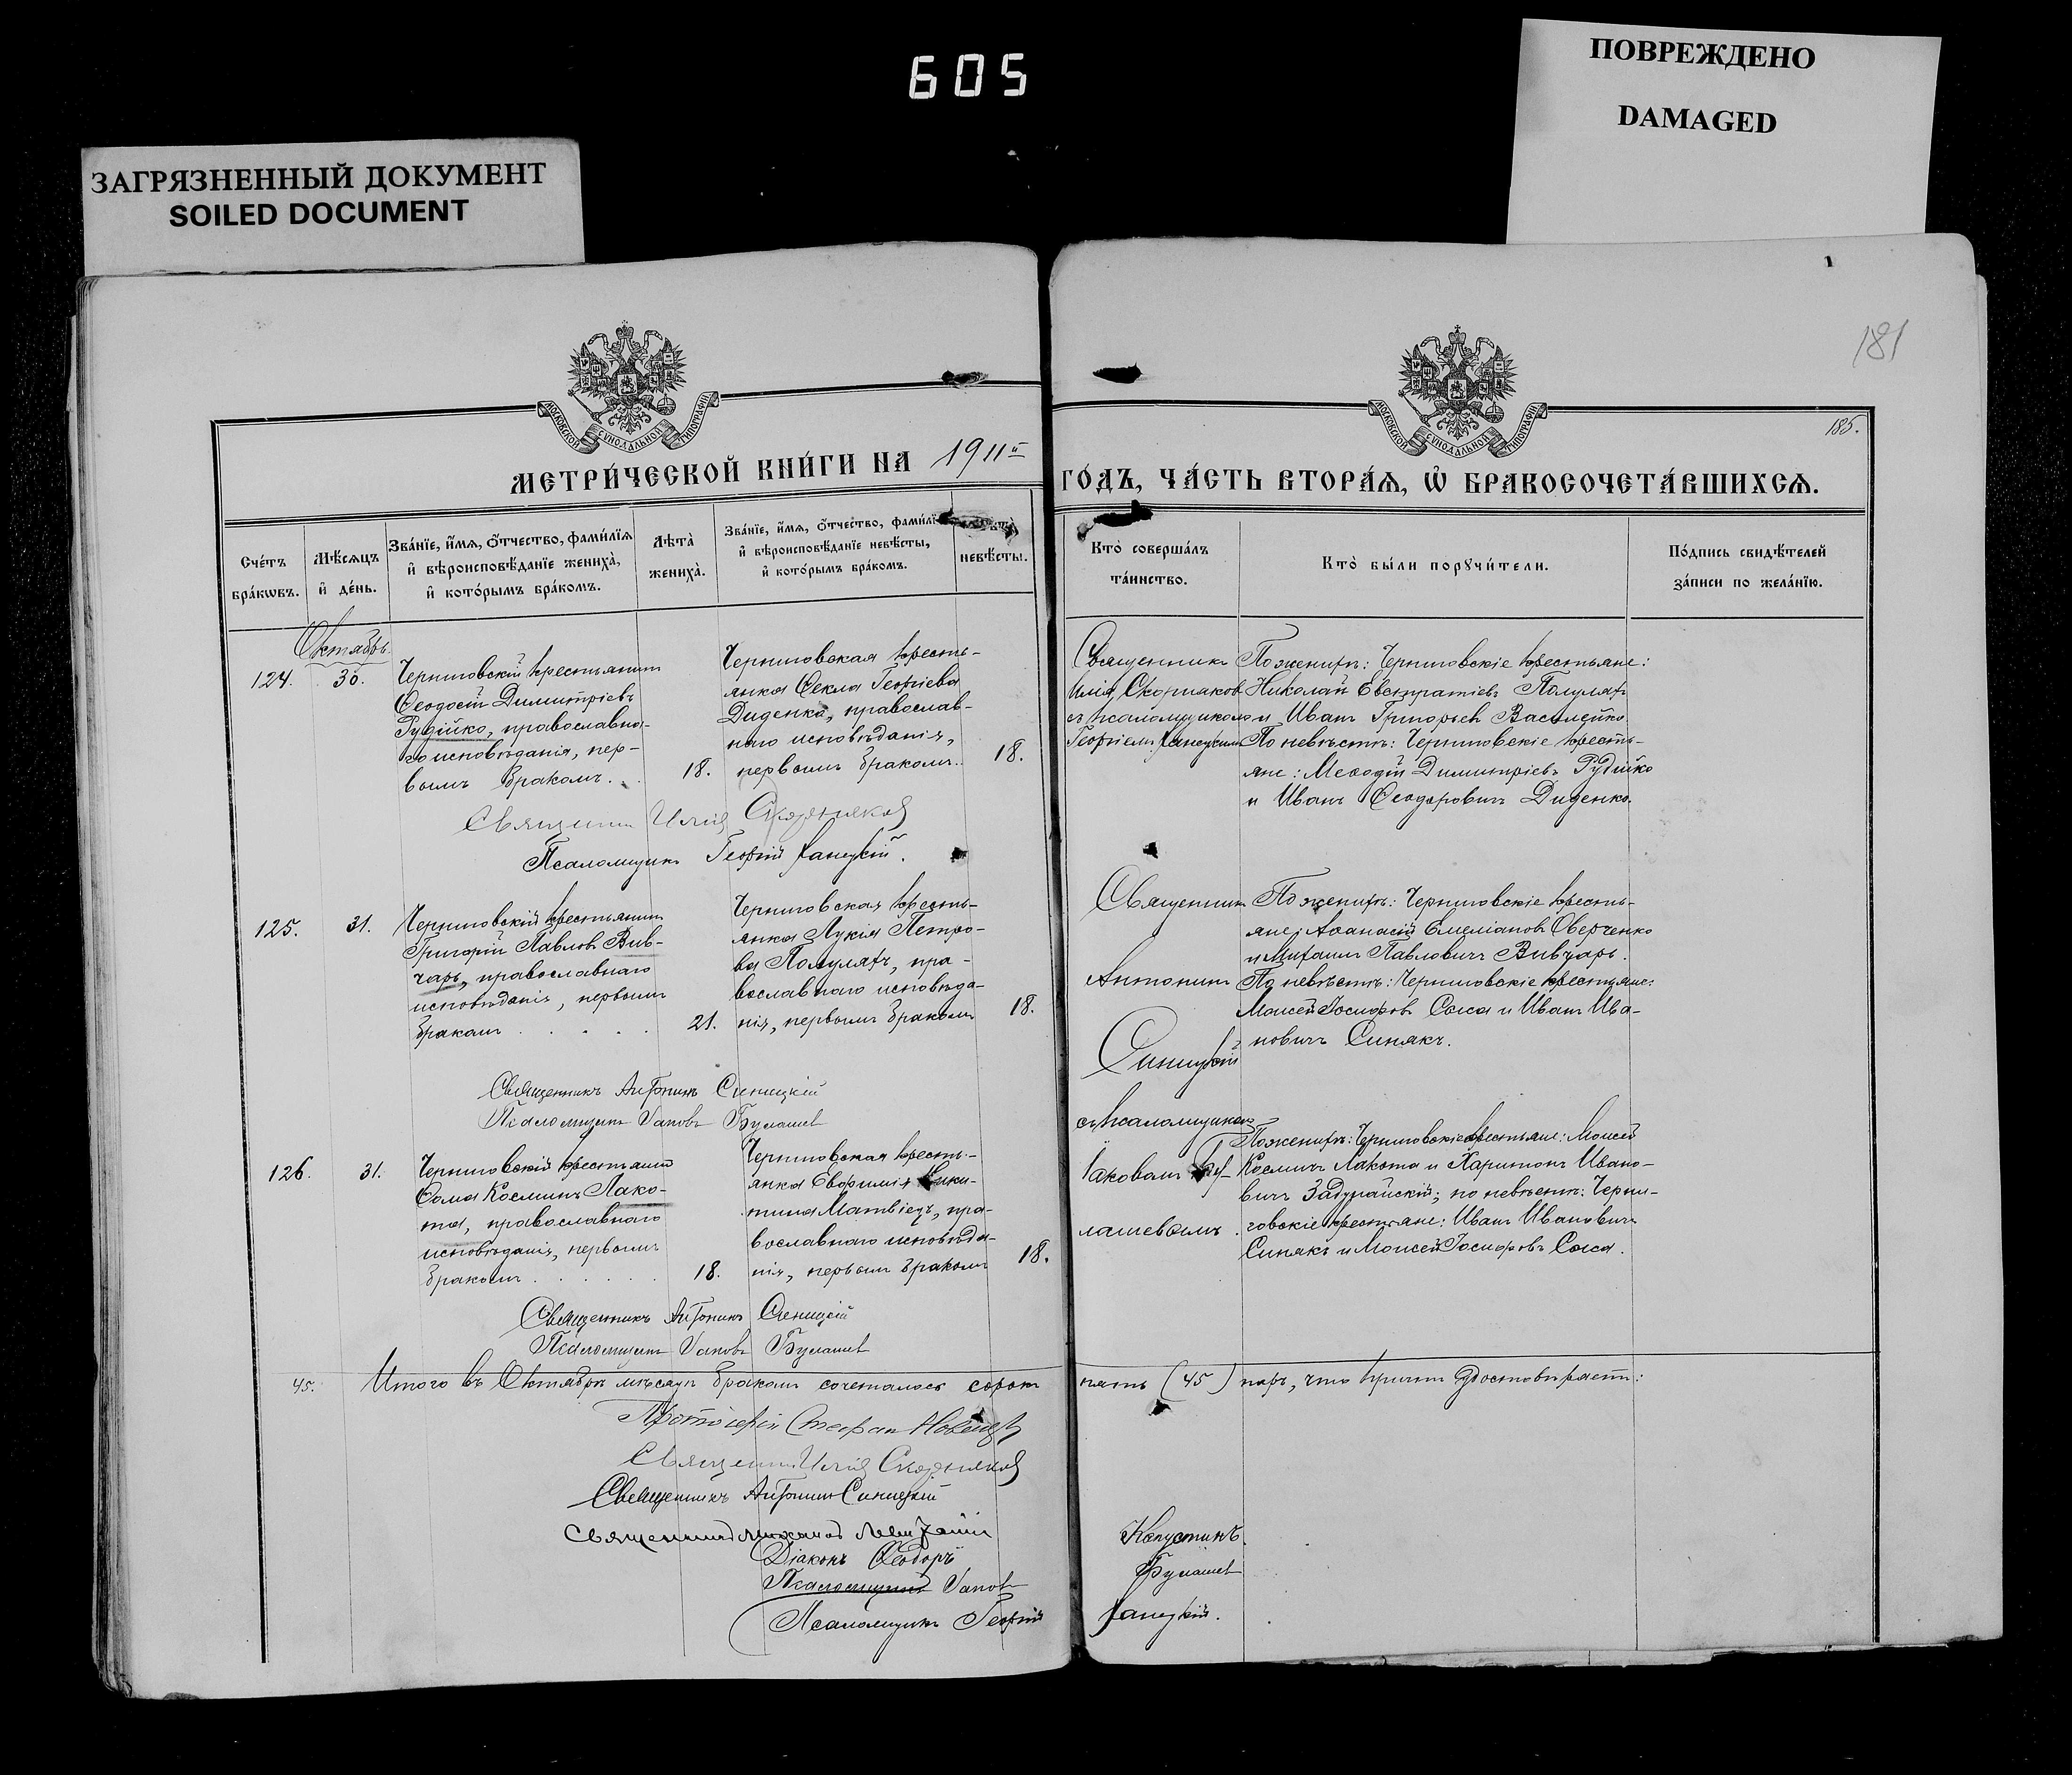 605
ПОВРЕЖДЕНО
DAMAGED
ЗАГРЯЗНЕННЫЙ ДОКУМЕНТ
SOILED DOCUMENT
181
185.
МОСКОВСКОЙ СѴНОДАЛЬНОЙ ТИПОГРАФІИ
МОСКОВСКОЙ СѴНОДАЛЬНОЙ ТИПОГРАФІИ
МЕТРИ́ЧЕСКОЙ КНИ́ГИ НА 1911й ГО́ДЪ, ЧА́СТЬ ВТОРА́Ѧ, Ѡ҆ БРАКОСОЧЕТА́ВШИХСѦ.
Сче́тъ
бра́кѡвъ.
Мѣ́сѧцъ
и҆ де́нь.
Зва́нїе, и҆́мѧ, ѻ҆́тчество, фами́лїѧ
и҆ вѣроисповѣ́данїе жениха̀,
и҆ кото́рымъ бра́комъ.
Лѣта̀
жениха̀.
Зва́нїе, и҆́мѧ, ѻ҆́тчество, фами́лї
и҆ вѣроисповѣ́данїе невѣ́сты,
и҆ кото́рымъ бра́комъ.
невѣ́сты.
Кто̀ соверша́лъ
та́инство.
Кто̀ бы́ли порꙋчи́тели.
По́дпись свидѣ́телей
за́писи по жела́нїю.
Октябрь.
124.
30.
Черниговскій крестьянинъ
Ѳеодосій Димитріевъ
Рудійко, православна-
го исповѣданія, пер-
вымъ бракомъ. .
18.
Черниговская кресть-
янка Ѳекла Георгіева
Диденко, православ-
наго исповѣданія,
первымъ бракомъ.
18.
Священникъ
Илія Скорняков
съ псаломщикомъ
Георгіемъ Ханецкимъ
По женихѣ: Черниговскіе крестьяне:
Николай Евстратіевъ Полулях
и Иванъ Григорьев Василейко
По невѣстѣ: Черниговскіе кресть-
яне: Меѳодій Димитріевъ Рудійко
и Иванъ Ѳеодоровичъ Диденко.
Священникъ Илія Скорняков
Псаломщикъ Георгій Ханецкій.
125.
31.
Черниговскій крестьянинъ
Григорій Павлов Вив-
чарь, православнаго
исповѣданія, первымъ
бракомъ . . . . .
21.
Черниговская кресть-
янка Лукія Петро-
ва Полулях, пра-
вославнаго исповѣда-
нія, первымъ бракомъ
18.
Священникъ
Антонинъ
Синицкій
съ псаломщикомъ
Іаковомъ Бу-
лашевымъ.
По женихѣ: Черниговскіе кресть-
яне: Аѳанасій Емеліанов Оверченко
и Михаилъ Павловичъ Вивчарь.
По невѣстѣ: Черниговскіе крестьяне:
Моисей Іосифовъ Сыса и Иванъ Ива-
новичъ Синякъ.
Священникъ Антонинъ Синицкій
Псаломщикъ Іаковъ Булашев
126.
31.
Черниговскій крестьянинъ
Ѳома Косминъ Лако-
та, православнаго
исповѣданія, первымъ
бракомъ . . . . . .
18.
Черниговская кресть-
янка Евфимія Ники-
тина Матвіец, пра-
вославнаго исповѣда-
нія, первымъ бракомъ
18.
По женихѣ: Черниговскіе крестьяне: Моисей
Космичъ Лакота и Харитонъ Ивано-
вичъ Задунайскій; по невѣстѣ: Черни-
говскіе крестьяне: Иванъ Ивановичъ
Синякъ и Моисей Іосифовъ Сыса.
Священникъ Антонинъ Синицкій
Псаломщикъ Іаковъ Булашев
45. Итого въ Октябрѣ мѣсяцѣ бракомъ сочеталось сорокъ пять (45) паръ, что причтъ удостовѣряетъ:
Протоіерей Стефан
Священникъ Илія Скорняков
Священникъ Антонинъ Синицкій
Священник Михаил
Діаконъ Ѳеодоръ Капустинъ.
Псаломщикъ Іаков Булашев
Псаломщикъ Георгій Ханецкій.